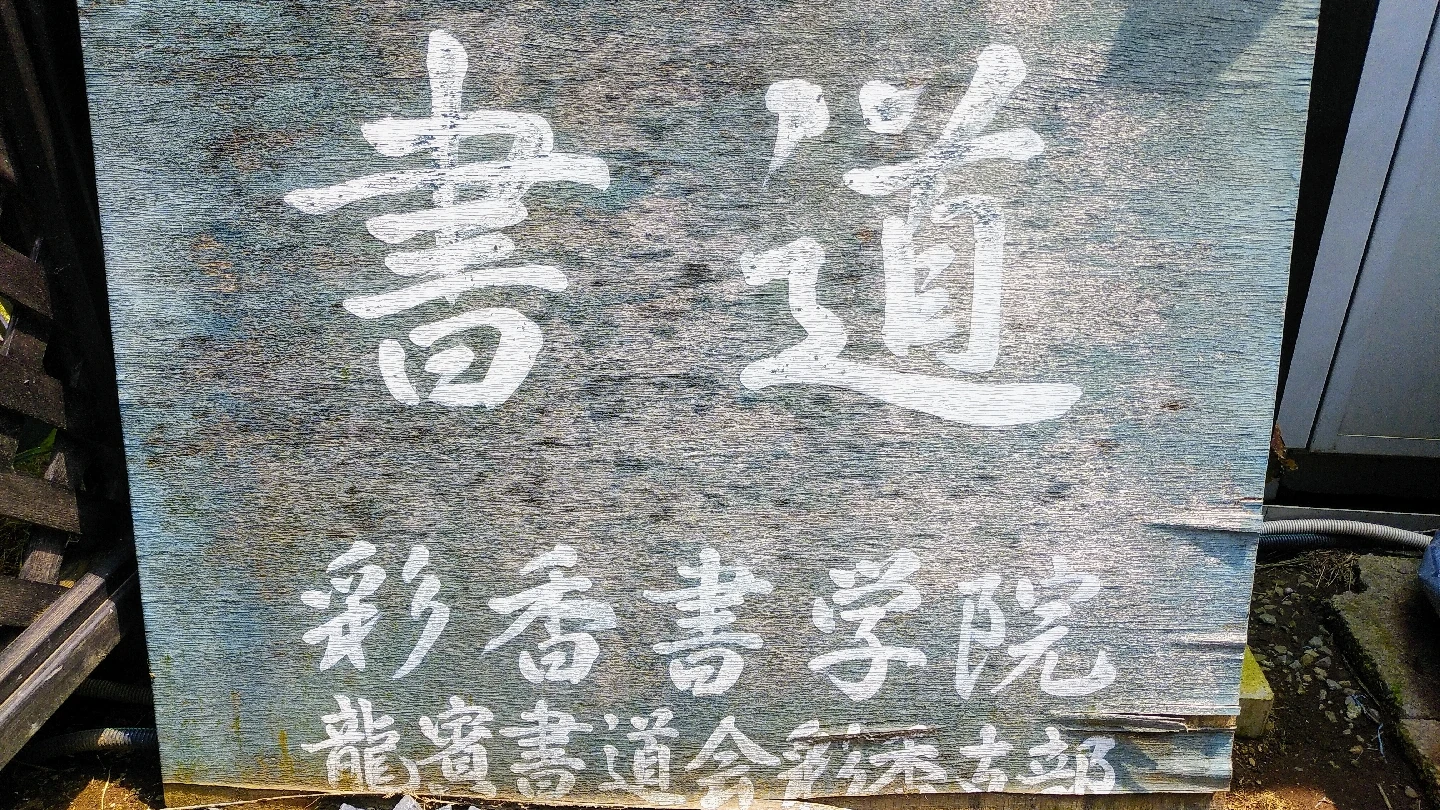 書道
彩香書学院
龍賓書道会彩香支部